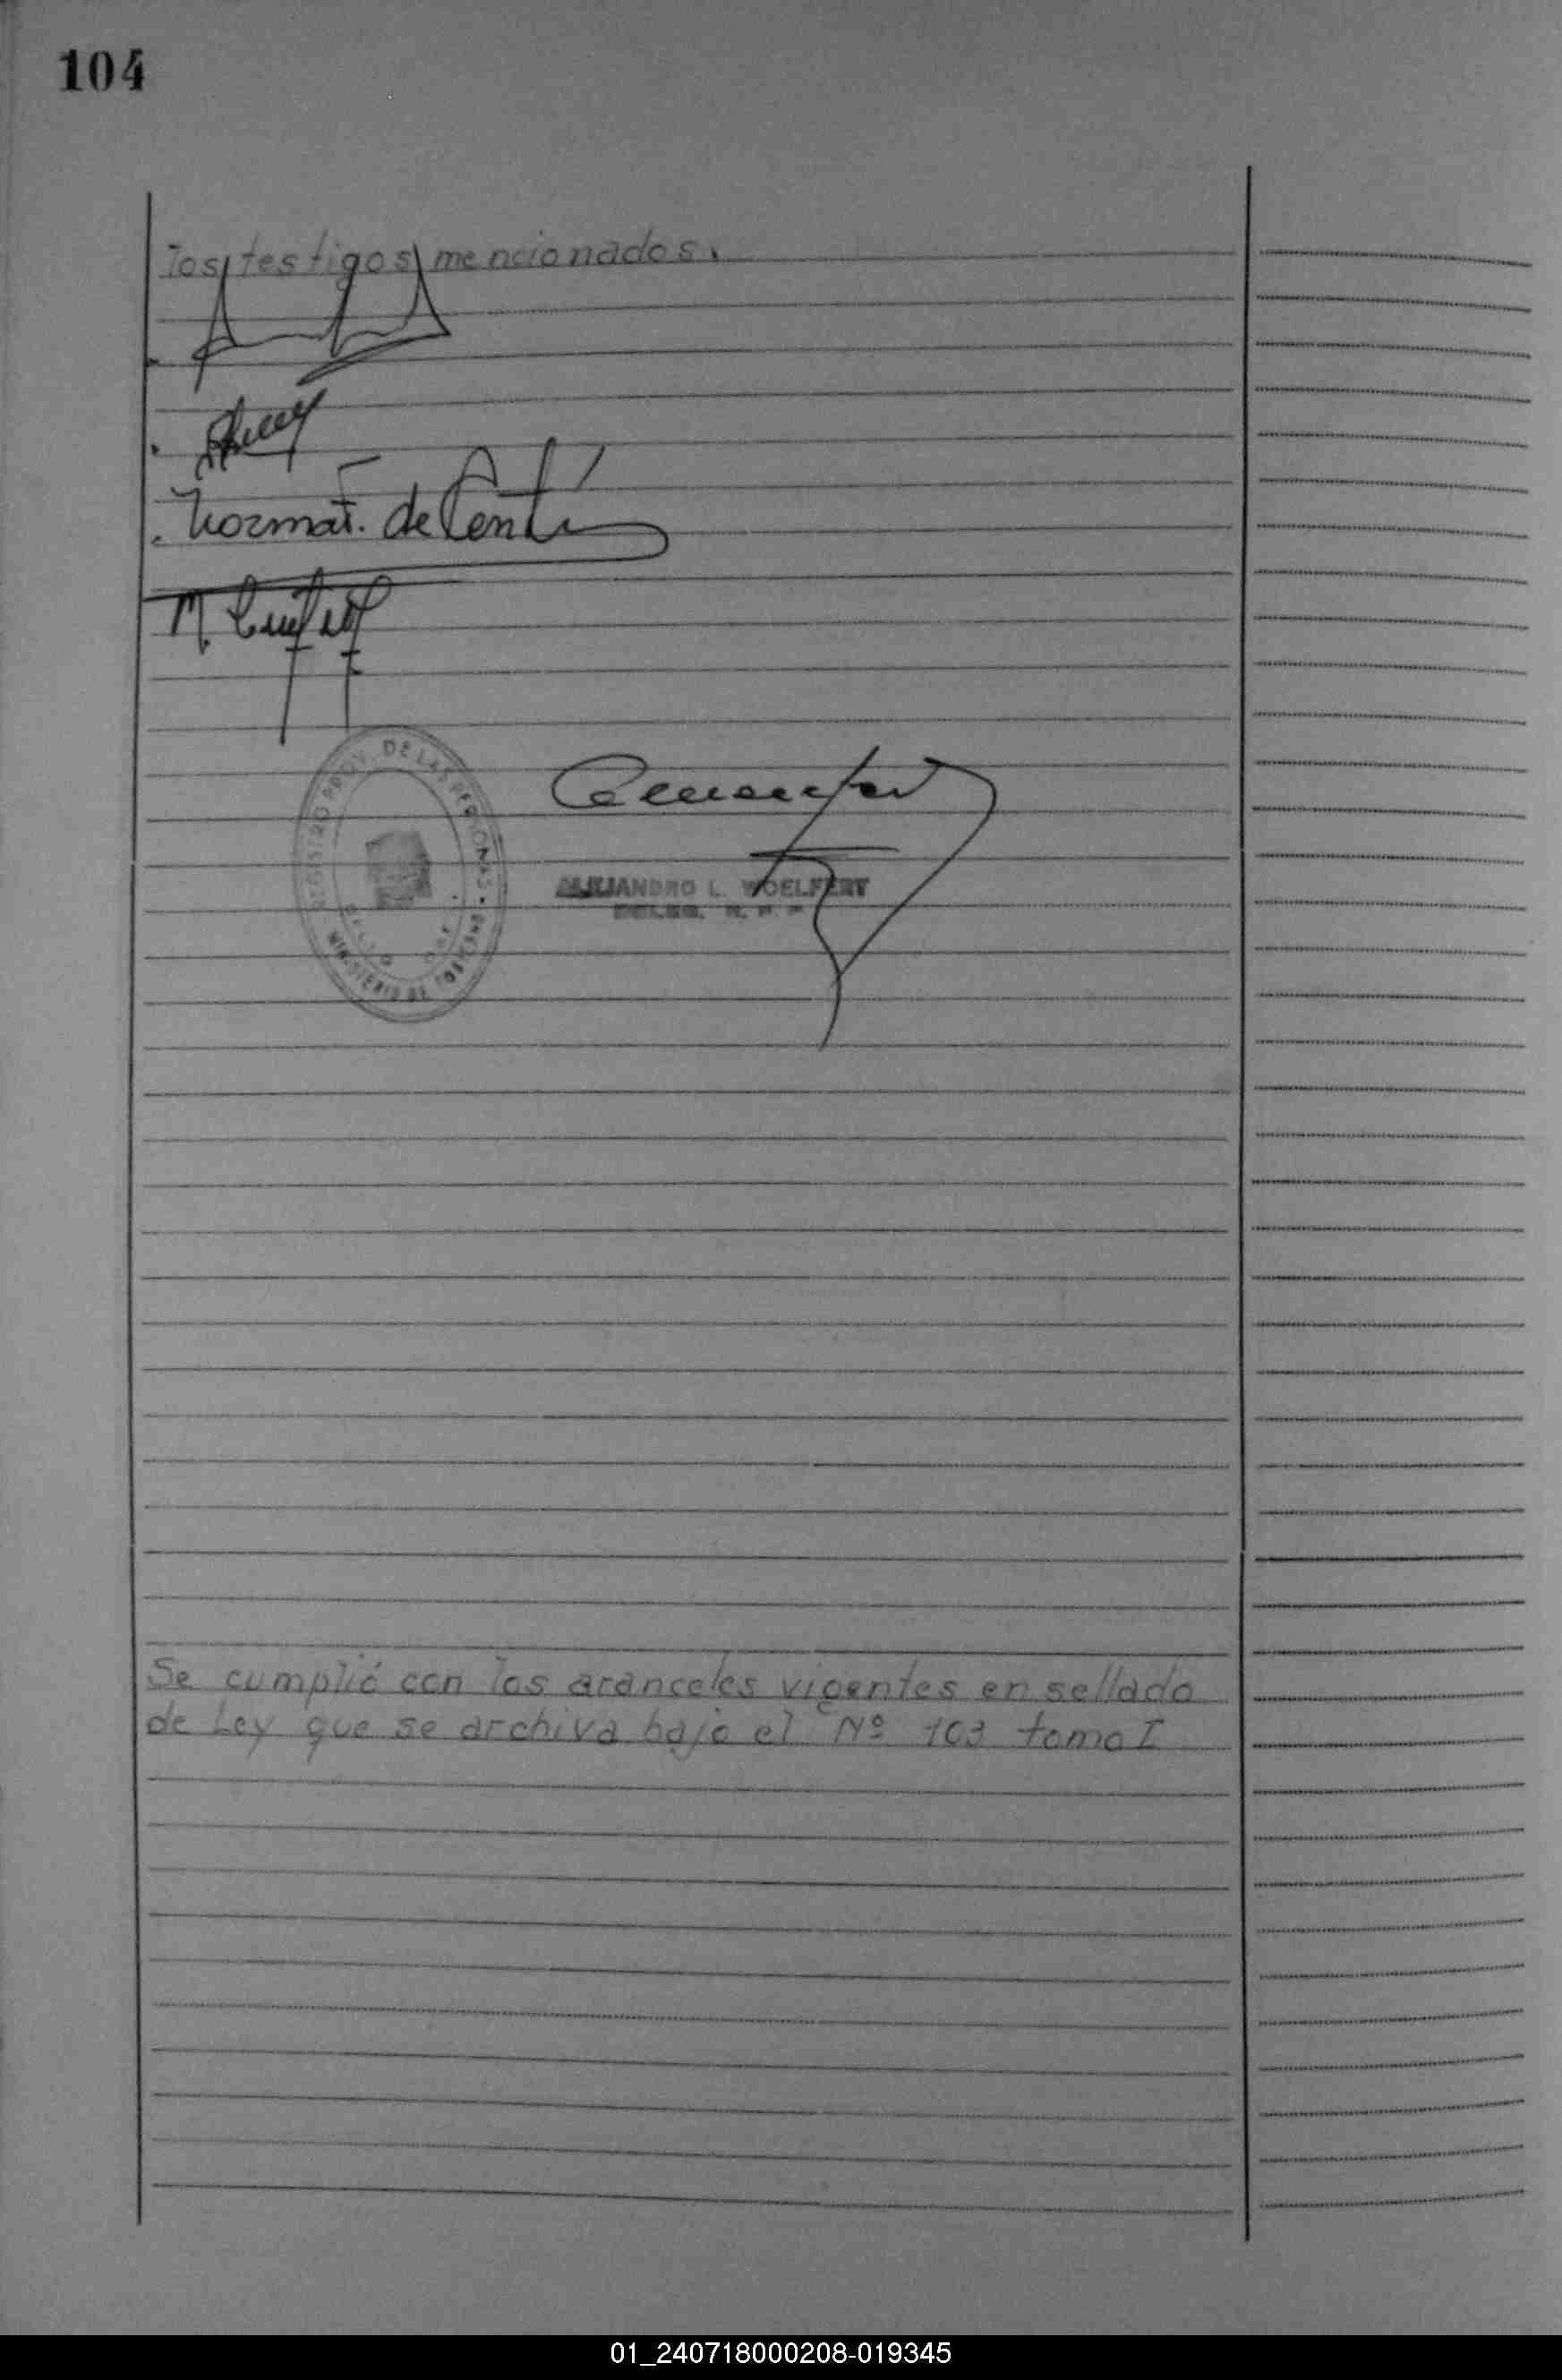 104
los testigos mencionados.
Norma T. de Conti
M.
REGISTRO PROV. DE LAS PERSONAS
MINISTERIO DE GOBIERNO
ALEJANDRO L. WOELFERT
DELEG. R. P. P.
Se cumplió con los aranceles vigentes en sellado
de Ley que se archiva bajo el Nº 103 tomo I
01_240718000208-019345